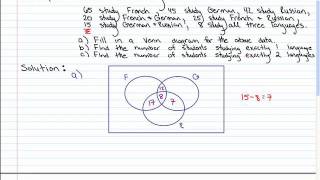 65 study French, 45 study German, 42 study Russian,
20 study French & German, 25 study French & Russian,
15 study German & Russian, 8 study all three languages.
a) Fill in a Venn diagram for the above data.
b) Find the number of students studying exactly 1 language
c) Find the number of students studying exactly 2 languages
Solution:
a)
F
G
12
8
17
7
R
15-8=7